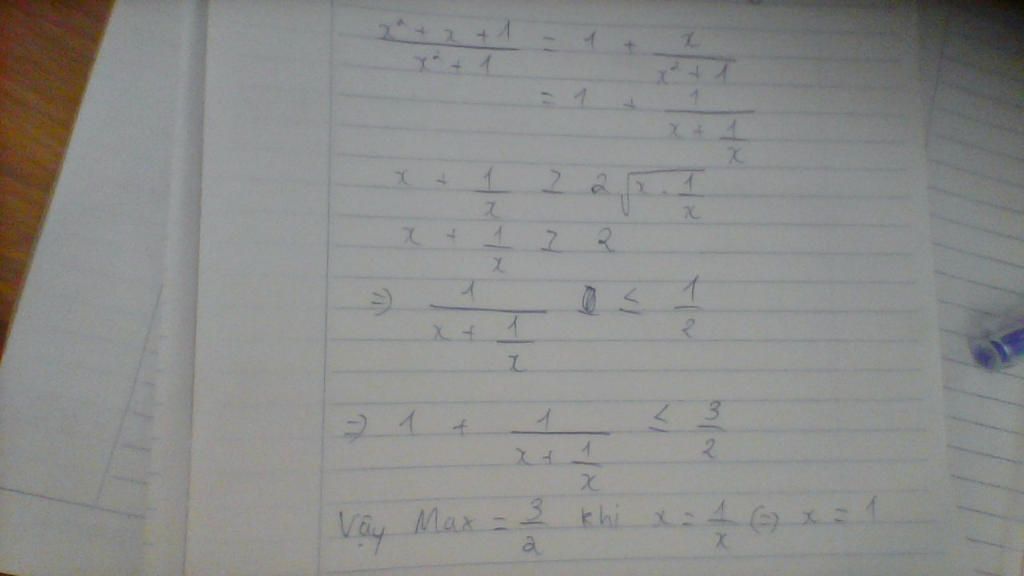 x² + x + 1 / x² + 1 = 1 + x / x² + 1
= 1 + 1 / x + 1/x
x + 1/x ≥ 2√x . 1/x
x + 1/x ≥ 2
=> 1 / x + 1/x ≤ 1/2
=> 1 + 1 / x + 1/x ≤ 3/2
Vậy Max = 3/2 khi x = 1/x (=) x = 1